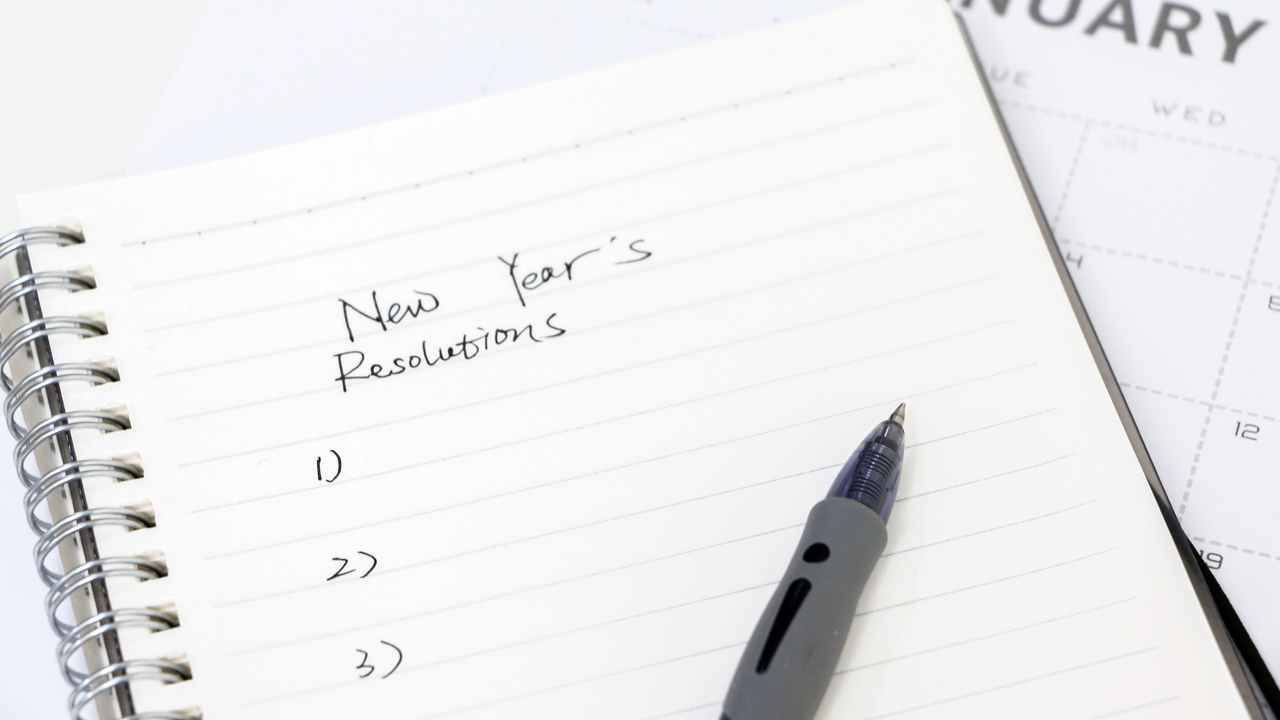 NUARY
UE WED
29
4 5
12
19
New Year's
Resolutions
1)
2)
3)